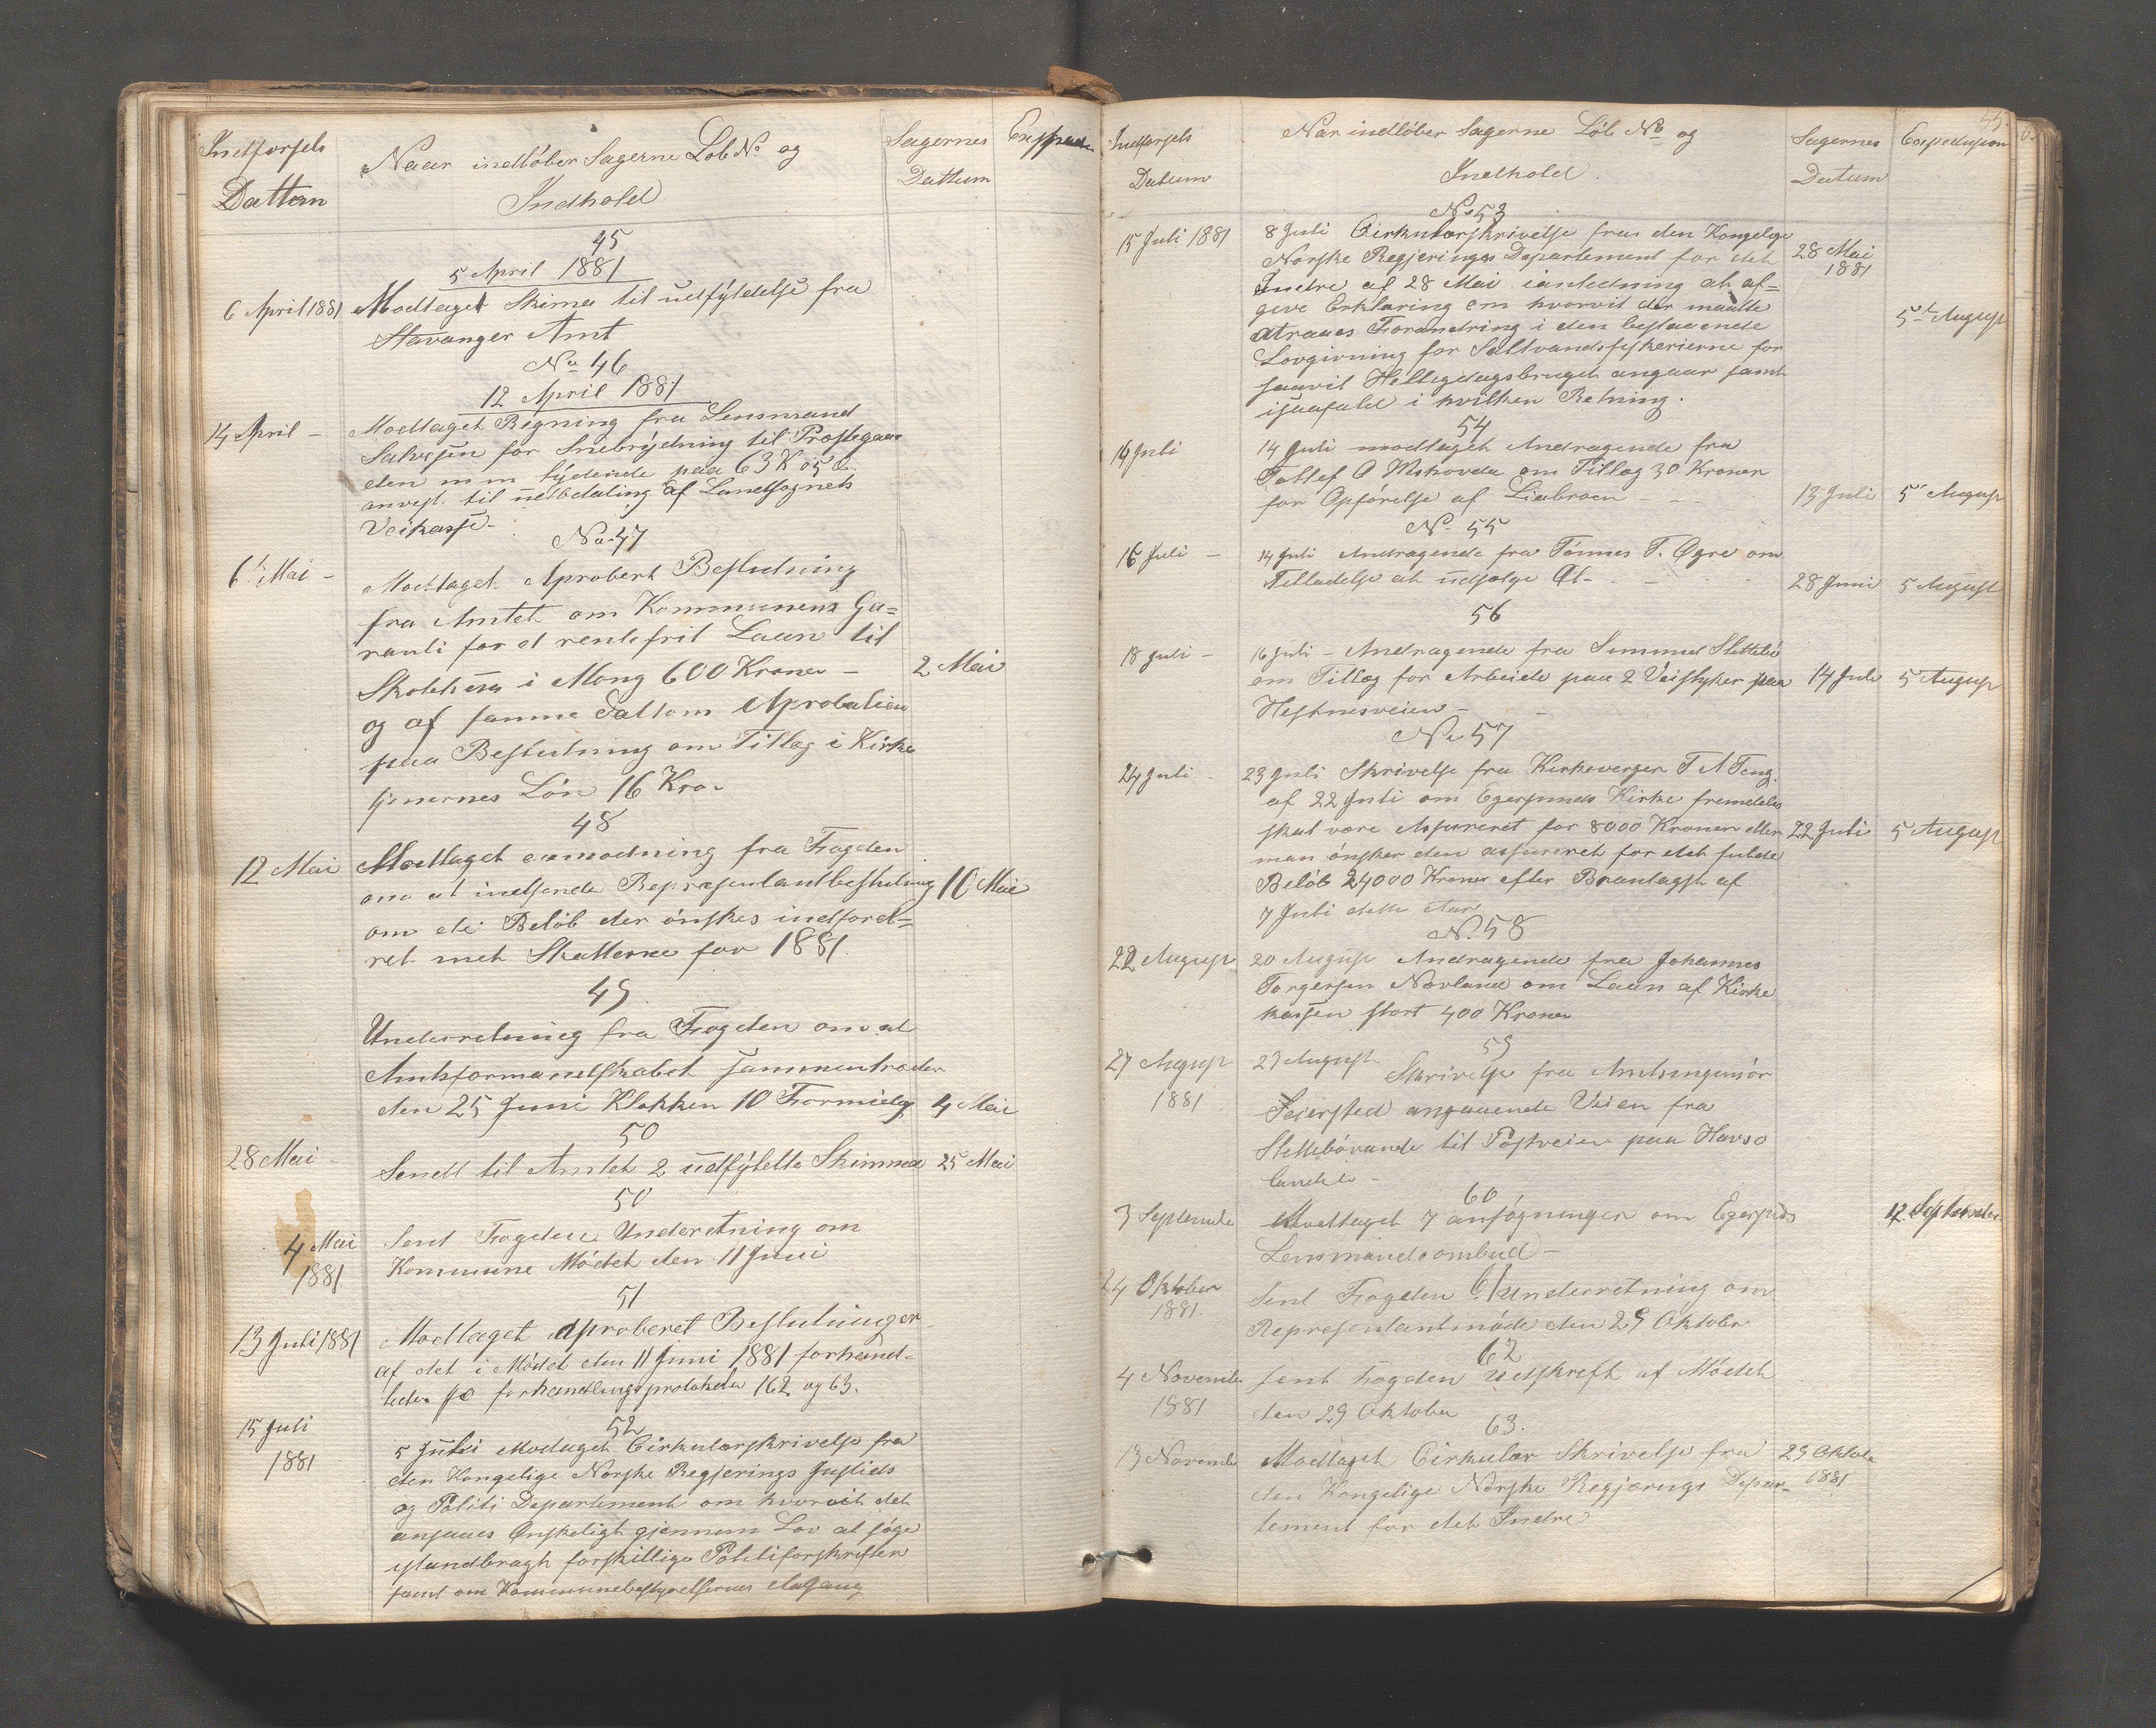 Indførsels
Dattum
Naar indløber Sagerne Løb No og
Indhold
Sagernes
Dattum
45
5 April 1881
6 April 1881 Modtaget Skima til udfyldelse fra
Stavanger Amt
No 46
12 April 1881
14 April – Modtaget Regning fra Lensmand
Salvesen for Snebrydning til Prostegaar
den m m lydende paa 63 K 05 Ø
anvist til udbetaling af Landsognets
Veikasse
No 47
6te Mai – Modtaget Aprobert Beslutning
fra Amtet om Kommunens Ga=
ranti for et rentefrit Laan til
Skolehus i Mong 600 Kroner – 2 Mai
og af samme Dattom Aprobation
paa Beslutning om Tillæg i Kirke
tjenernes Løn 16 Kro–
48
12 Mai Modtaget anmodning fra Fogden
om at indsende Repræsentantbeslutning 10 Mai
om de Beløb der ønskes indford=
ret met Skatterne for 1881.
49
Underretning fra Fogden om at
Amtsformandskabet sammentræder
den 25 Juni Klokken 10 Formidag 4 Mai
50
28 Mai – Sendt til Amtet 2 udfyldte Skimaer 25 Mai
50
4 Mai Sent Fogden Underetning om
1881. Kommune Mødet den 11 Juni
51
13 Juli 1881 Modtaget Aproberet Beslutninger
af det i Mødet den 11 Juni 1881 forhand-
lede forhandlingsprotokolen 162 og 63.
52
15 Juli 5 Juli Modtaget Cirkulærskrivelse fra
1881 den Kongelige Norske Regjerings Justids
og Politi Departement om hvorvit det
ansaaes Ønskeligt gjennem Lov at søge
istandbragt forskillige Politiforskrifter
samt om Kommunebestyrelsernes
55.
Indførsels
Datum
Nar indløber Sagerne Løb No og
Indhold.
Sagernes
Datum
Expedision
No 53
15 Juli 1881 8 Juli Cirkulærskrivelse fra den Kongelige
Norske Regjerings Departement for det 28 Mai
Indre af 28 Mai ianledning at af= 1881
give Erklaring om hvorvit der maatte
atraaes Forandring i den bestaaende 5te August
Lovgivning for Saltvandsfiskerierne for
saavit Helligdagsbruget angaar samt
isaafald i hvilken Retning.
54
16 Juli 14 Juli modtaget Andragende fra
Tollef O Mshovde om Tillæg 30 Kroner
for Opførelse af Liabroen – 13 Juli 5te August
No 55
16 Juli – 14 Juli Andragende fra Tønnes T. Øgre om
Tilladelse at udsælge Øl – – 28 Juni 5 August
56
18 Juli – 16 Juli – Andragende fra Simund Slettebø
om Tillæg for Arbeide paa 2 Veistyker paa 14 Juli 5 August
Hestnesveien –
No 57
24 Juli – 23 Juli Skrivelse fra Kirkeverger T A Teng.
af 22 Juli om Egersunds Kirke fremdeles
skal være Assureret for 8000 Kroner eller 22 Juli 5 August
man ønsker den assureret for det fulde
Beløb 24000 Kroner efter Brantagst af
7 Juli dette Aar
No 58
22 August 20 August Andragende fra Johannes
Torgersen Novland om Laan af Kirke
kassen stort 400 Kroner
59
27 August 23 August Skrivelse fra Amtsingeniør
1881 Seiersted angaaende Veien fra
Slettebøvande til Postveien paa Havsø
landet –
60
3 September Modtaget 7 ansøgninger om Egersunds 12 September
Lensmandsombud –
24 Oktober Sent Fogden 61 underretning om
1881. Represantantmøde den 29 Oktober
62
4 November Sent Fogden Udskreft af Mødet
1881 den 29 Oktober
63.
13 November Modtaget Cirkulær Skrivelse fra 29 Oktober
den Kongelige Norske Regjerings Depar- 1881
tement for det Indre